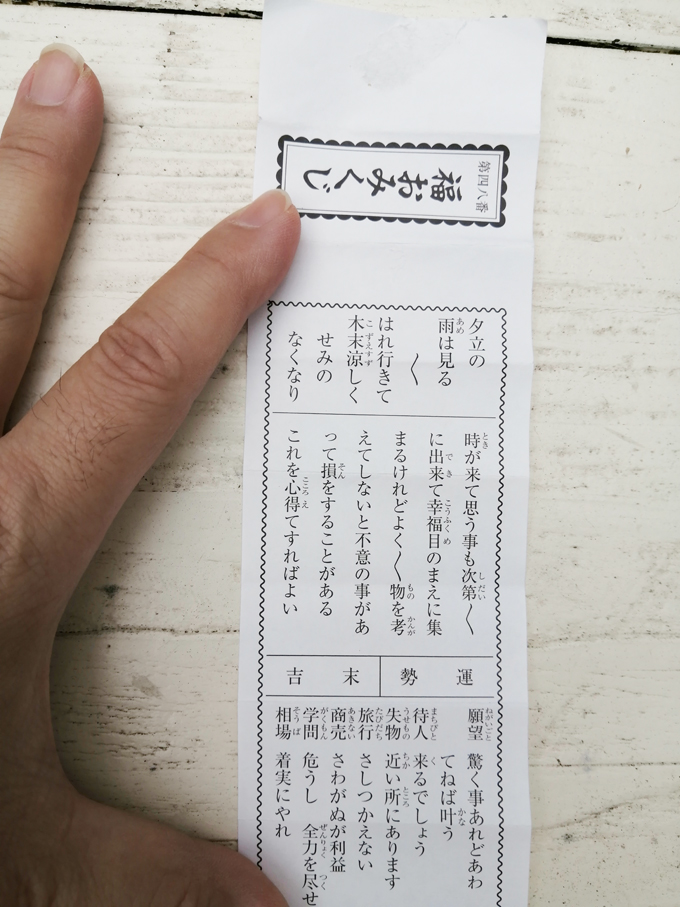 第四八番
福おみくじ
夕立の
雨は見る
〱
はれ行きて
木末涼しく
せみの
なくなり
時が来て思う事も次第〱
に出来て幸福目のまえに集
まるけれどよく〱物を考
えてしないと不意の事があ
って損をすることがある
これを心得てすればよい
運勢 末吉
願望 驚く事あれどあわ
てねば叶う
待人 来るでしょう
失物 近い所にあります
旅行 さしつかえない
商売 さわがぬが利益
学問 危うし 全力を尽せ
相場 着実にやれ